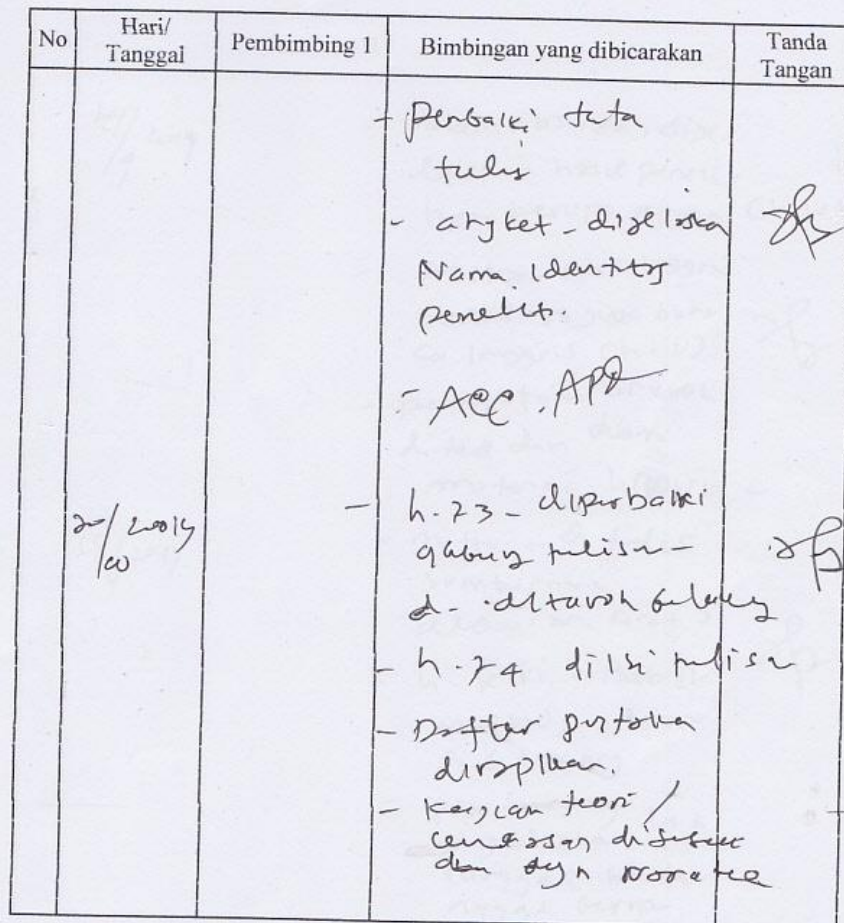 No
Hari/
Tanggal
Pembimbing 1
Bimbingan yang dibicarakan
Tanda
Tangan
- Perbaiki tata
tulis
- angket - dijelaska
Nama. Identitas
penelit.
- ACC. APD
- h. 23 - diperbaiki
gabung tulisa -
d - ditaroh
- h. 24 diisi tulisa
- Daftar pustaka
dirapikan.
- Kajian teori /